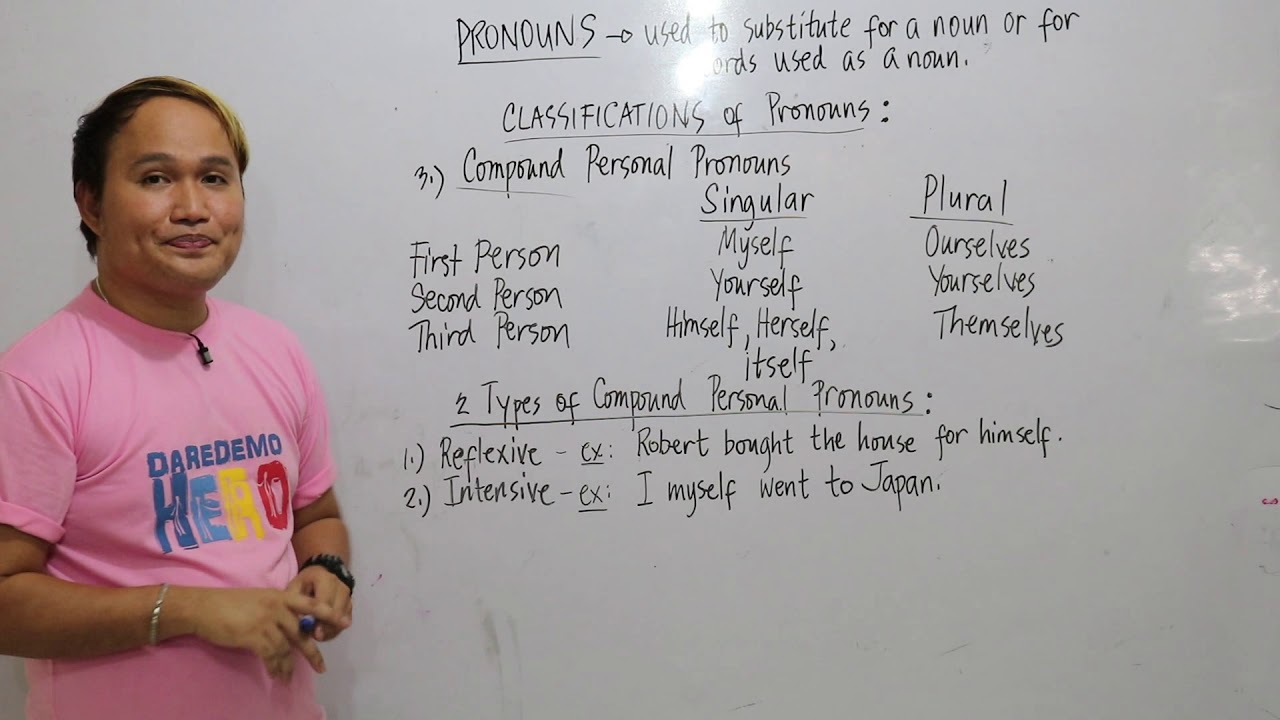 PRONOUNS → used to substitute for a noun or for
ords used as a noun.
CLASSIFICATIONS of Pronouns:
3.) Compound Personal Pronouns
Singular Plural
First Person Myself Ourselves
Second Person Yourself Yourselves
Third Person Himself, Herself, Themselves
itself
2 Types of Compound Personal Pronouns:
1.) Reflexive - ex: Robert bought the house for himself.
2.) Intensive - ex: I myself went to Japan.
DAREDEMO
HERO